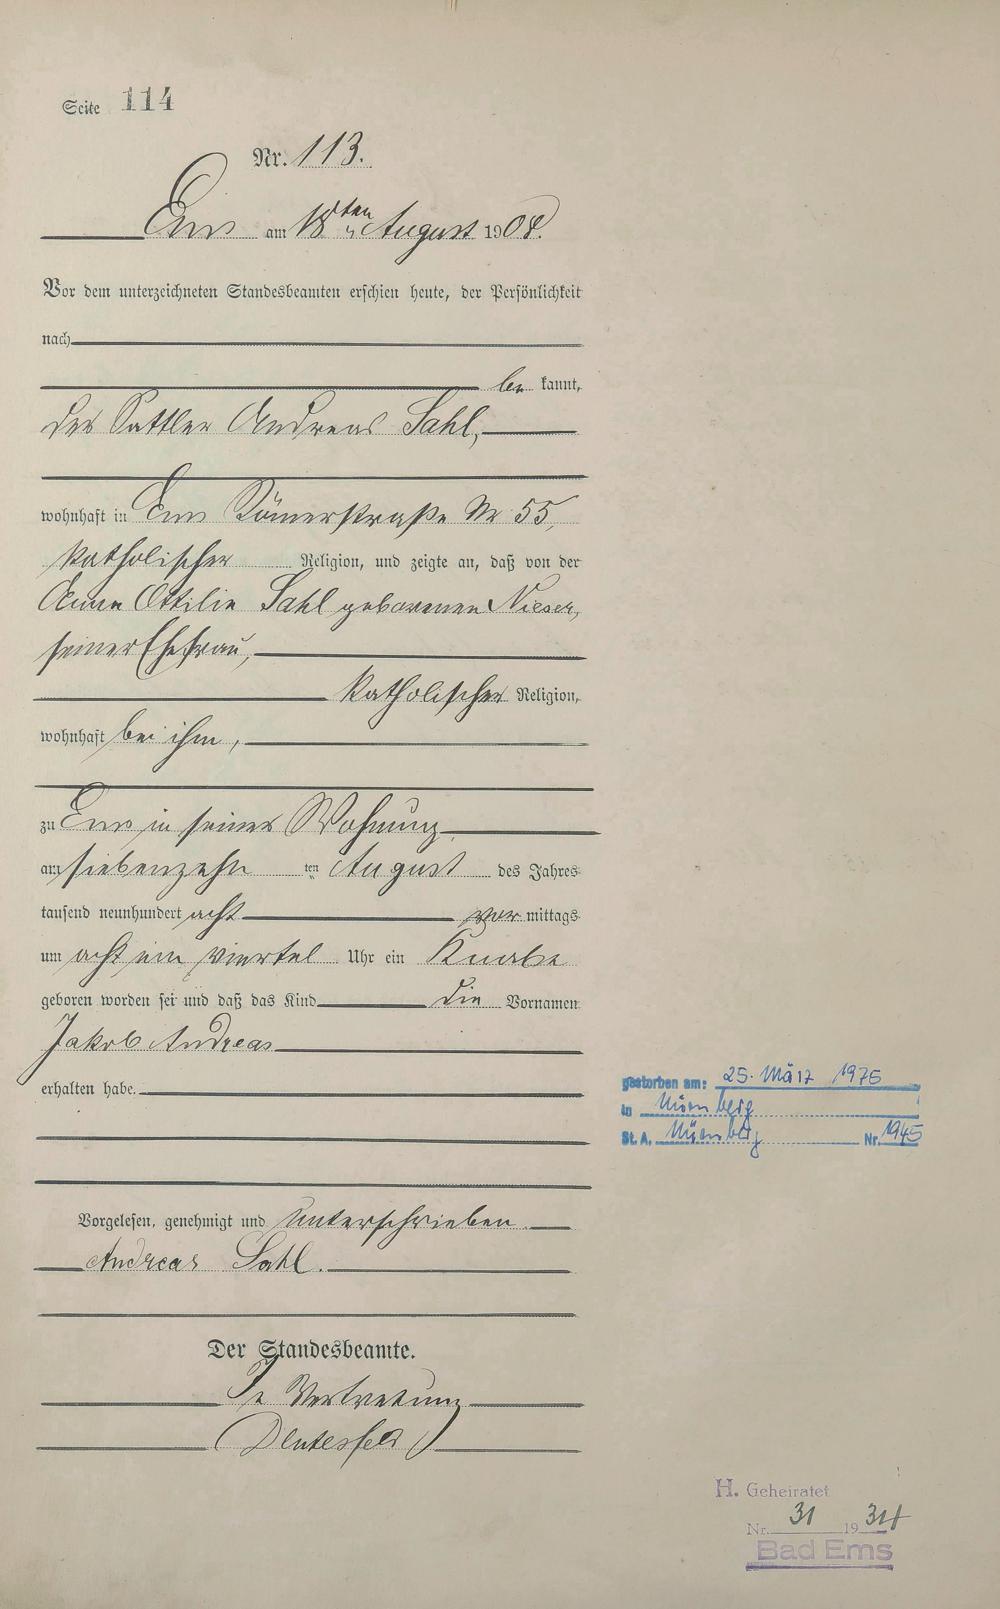 Seite 114
Nr. 113.
Ems am 18ten August 1908.
Vor dem unterzeichneten Standesbeamten erschien heute, der Persönlichkeit
nach
be kannt,
der Sattler Andreas Sahl,
wohnhaft in Ems Römerstraße Nr 55,
katholischer Religion, und zeigte an, daß von der
Anna Ottilie Sahl geborenen Nieser,
seiner Ehefrau,
katholischer Religion,
wohnhaft bei ihm,
zu Ems in seiner Wohnung
am siebenzehn ten August des Jahres
tausend neunhundert acht vor mittags
um acht ein viertel Uhr ein Knabe
geboren worden sei und daß das Kind die Vornamen
Jakob Andreas
erhalten habe.
gestorben am: 25. März 1976
in Nürnberg
St. A. Nürnberg Nr. 1945
Vorgelesen, genehmigt und unterschrieben.
Andreas Sahl.
Der Standesbeamte.
In Vertretung
H. Geheiratet
Nr. 31 1934
Bad Ems